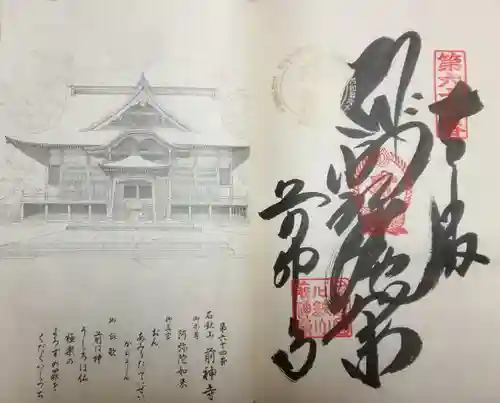 奉拝
阿弥陀如来
前神寺
第六十四番
石鈇山 前神寺
御本尊
阿弥陀如来
御真言
おん
あみりたていぜい
からうん
御詠歌
前は神
うしろは仏
極楽の
よろずの罪を
くだくいしづち